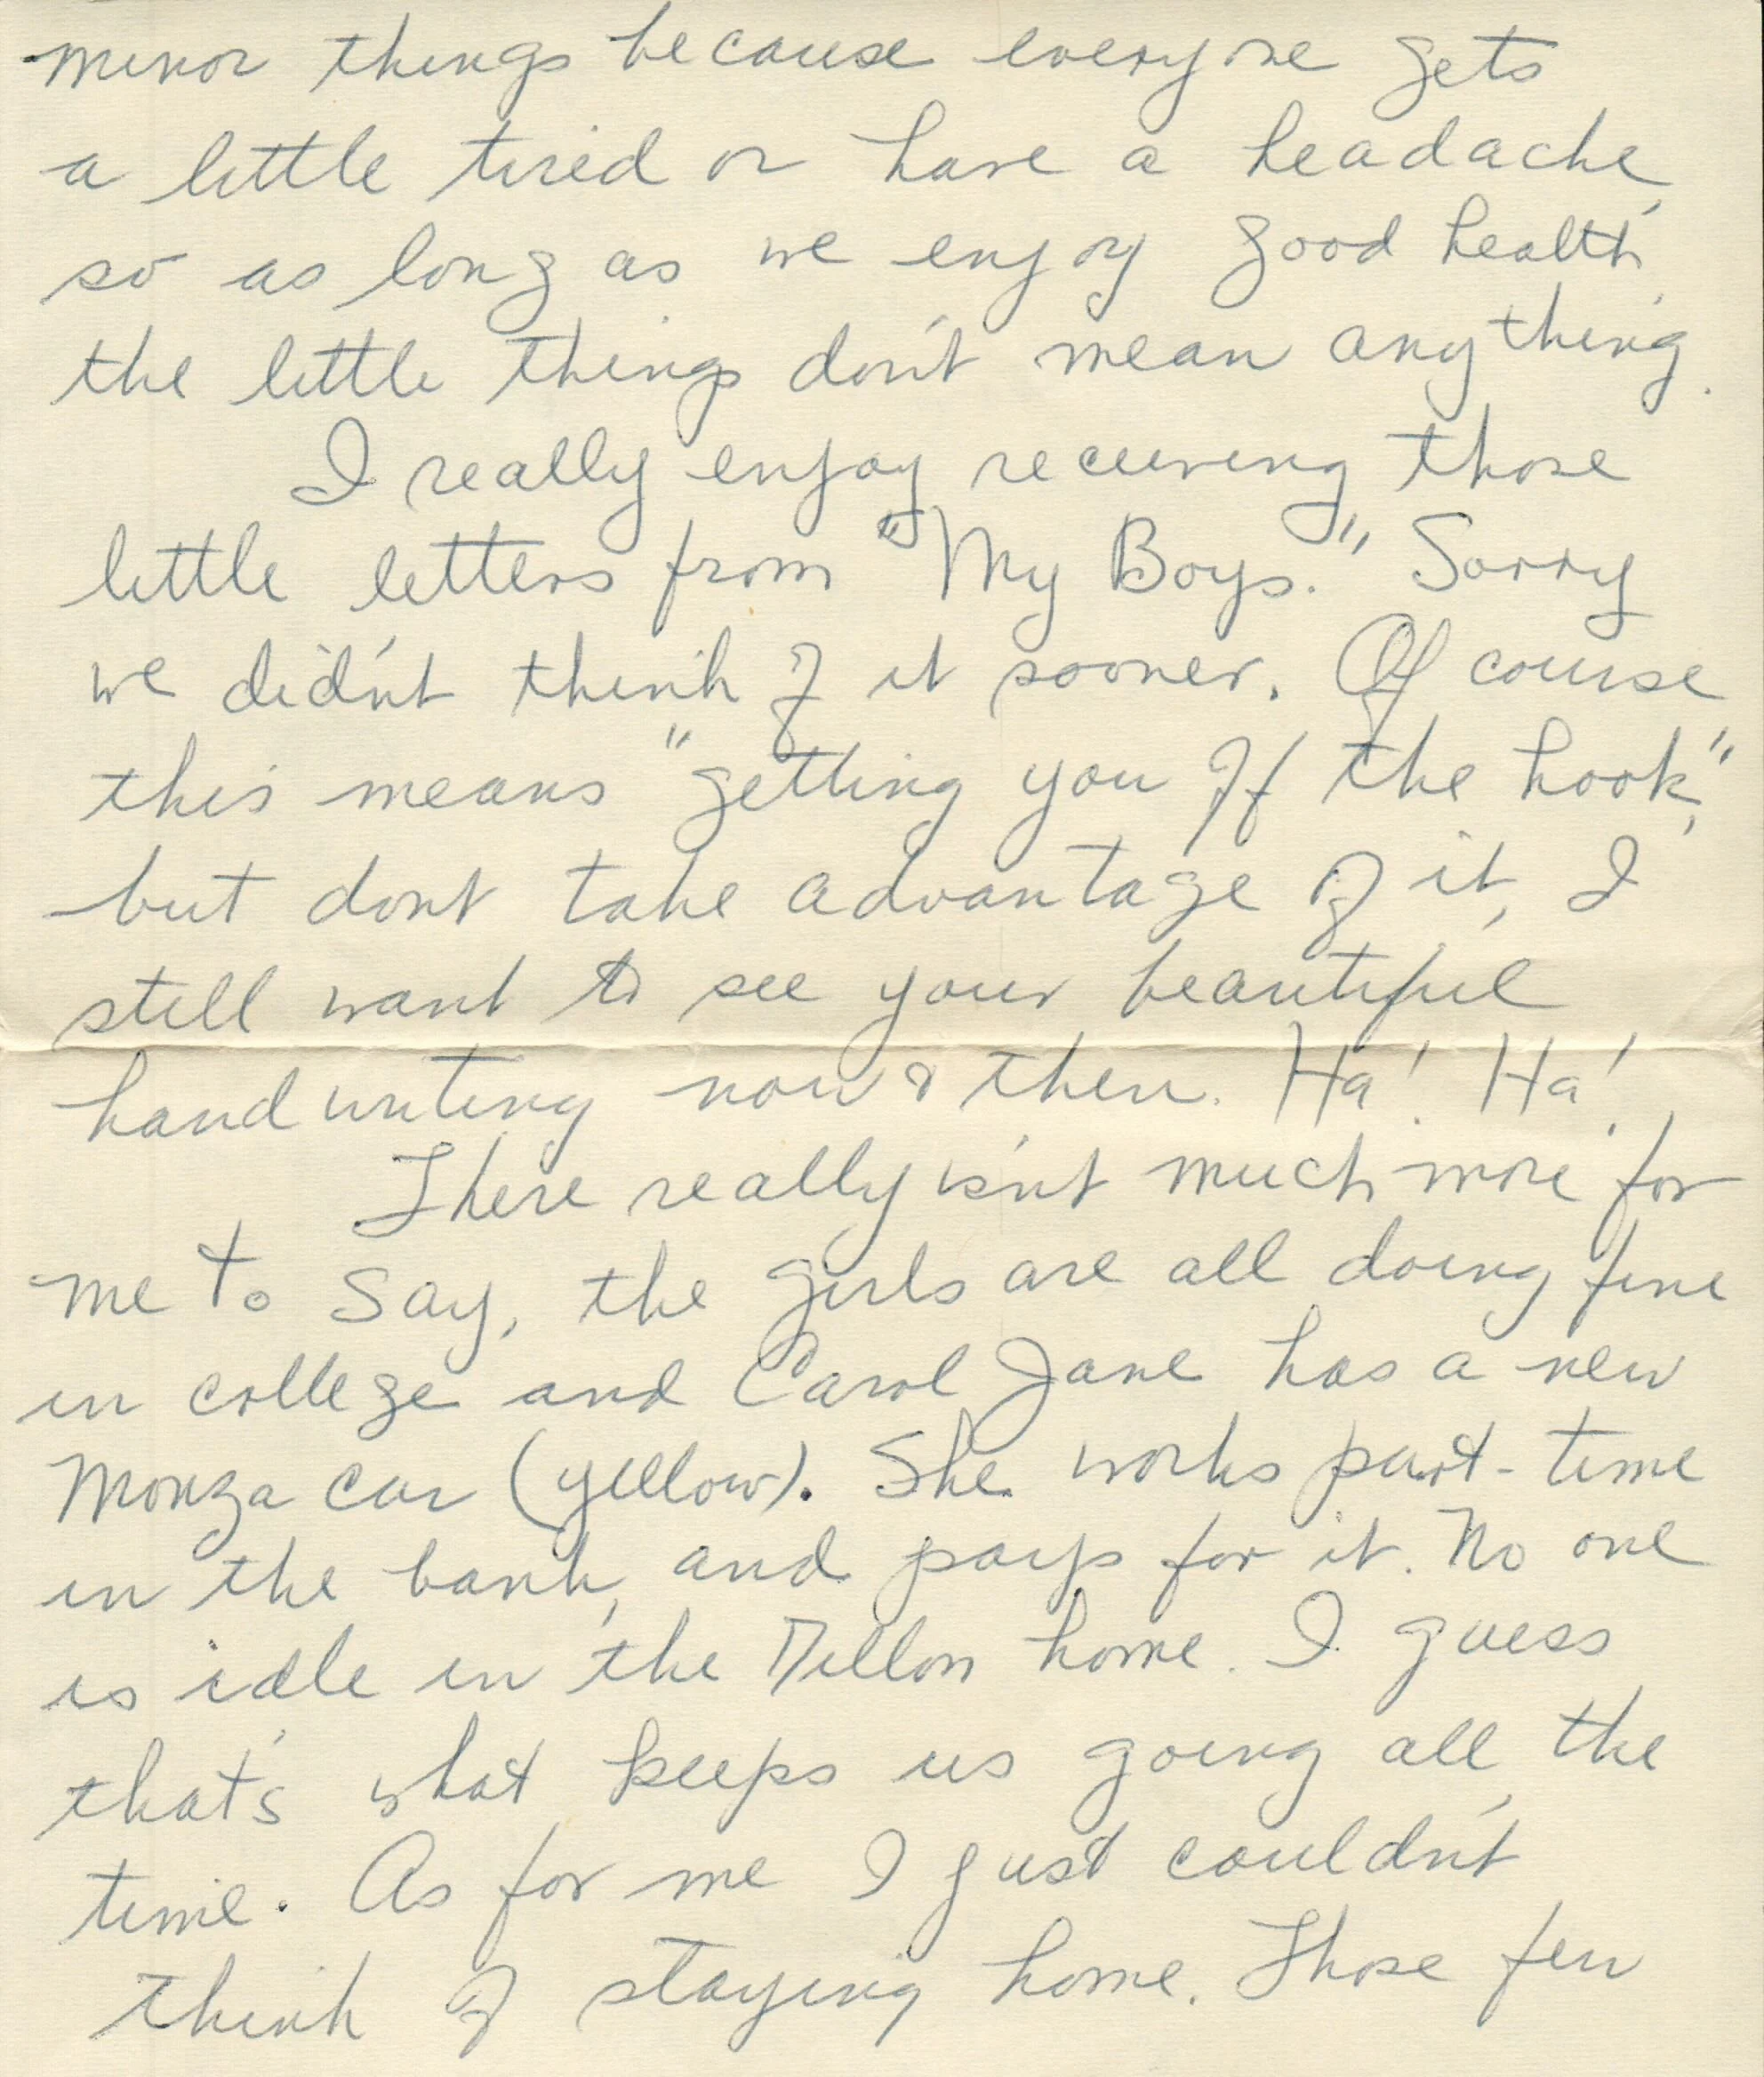 minor things because everyone gets
a little tired or have a headache,
so as long as we enjoy good health,
the little things don't mean anything.
I really enjoy receiving those
little letters from "My Boys." Sorry
we didn't think of it sooner. Of course
this means "getting you off the hook,"
but dont take advantage of it, I
still want to see your beautiful
handwriting now & then. Ha! Ha!
There really isn't much more for
me to say, the girls are all doing fine
in college and Carol Jane has a new
Monza car (yellow). She works part-time
in the bank, and pays for it. No one
is idle in the Dillon home. I guess
that's what keeps us going all the
time. As for me I just couldn't
think of staying home. Those few